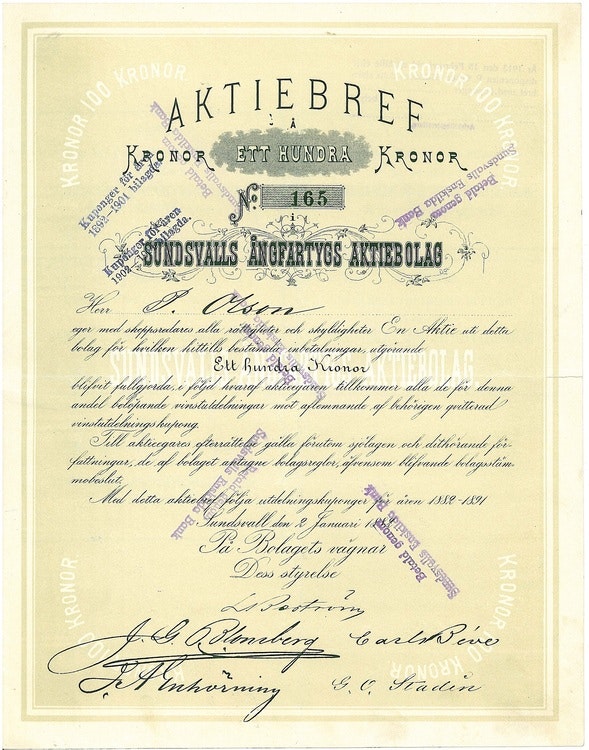 KRONOR 100 KRONOR
KRONOR 100 KRONOR
AKTIEBREF
å
KRONOR ETT HUNDRA KRONOR
No. 165
i
SUNDSVALLS ÅNGFARTYGS AKTIEBOLAG
Herr P. Olson
eger med skeppsredares alla rättigheter och skyldigheter En Aktie uti detta
bolag för hvilken hittills bestämda inbetalningar, utgörande
Ett hundra Kronor
blifvit fullgjorda, i följd hvaraf aktieegaren tillkommer alla de för denna
andel belöpande vinstutdelningar mot aflemnande af behörigen qvitterad
vinstutdelningskupong.
Till aktieegares efterrättelse gälla förutom sjölagen och dithörande för-
fattningar, de af bolaget antagne bolagsreglor, äfvensom blifvande bolagsstäm-
mobeslut.
Med detta aktiebref följa utdelningskuponger för åren 1882-1891
Sundsvall den 2 Januari
På Bolagets vägnar
Dess styrelse
J. G. Blomberg
J. A. Enhörning
G. O. Stadin
Kuponger för åren
1892-1901 bilagda.
Kuponger för åren
1902-
Betald genom
Sundsvalls Enskilda Bank
Betald genom
Sundsvalls Enskilda Bank
Betald genom
Sundsvalls Enskilda Bank
Betald genom
Sundsvalls Enskilda Bank
100 KRONOR
KRONOR
KRONOR 100